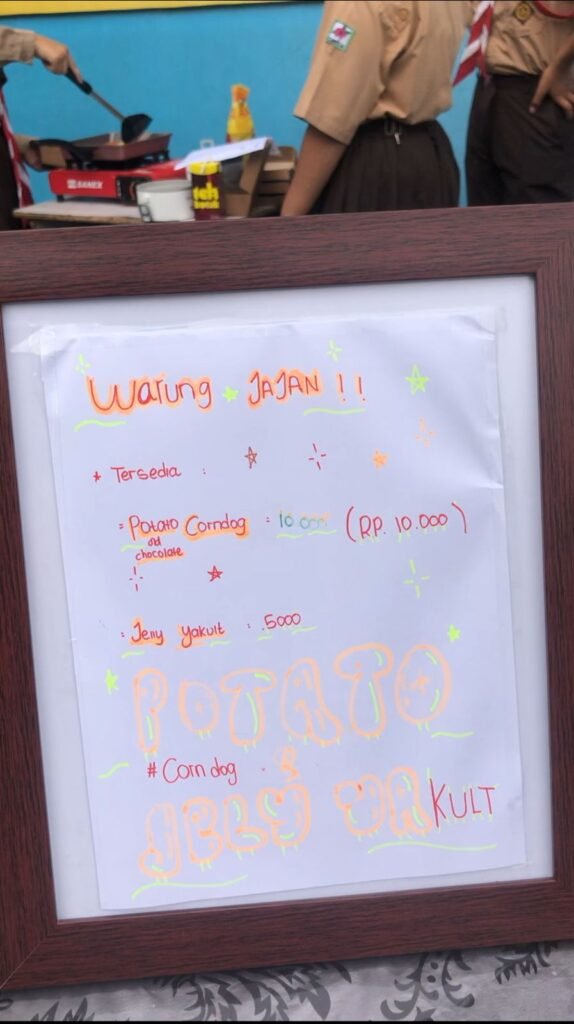 SANEX
Warung JAJAN !!
* Tersedia :
= Potato Corndog : 10.000 (RP. 10.000)
and
chocolate
: Jelly Yakult : .5000
POTATO
#Corndog . &
JELLY YAKULT